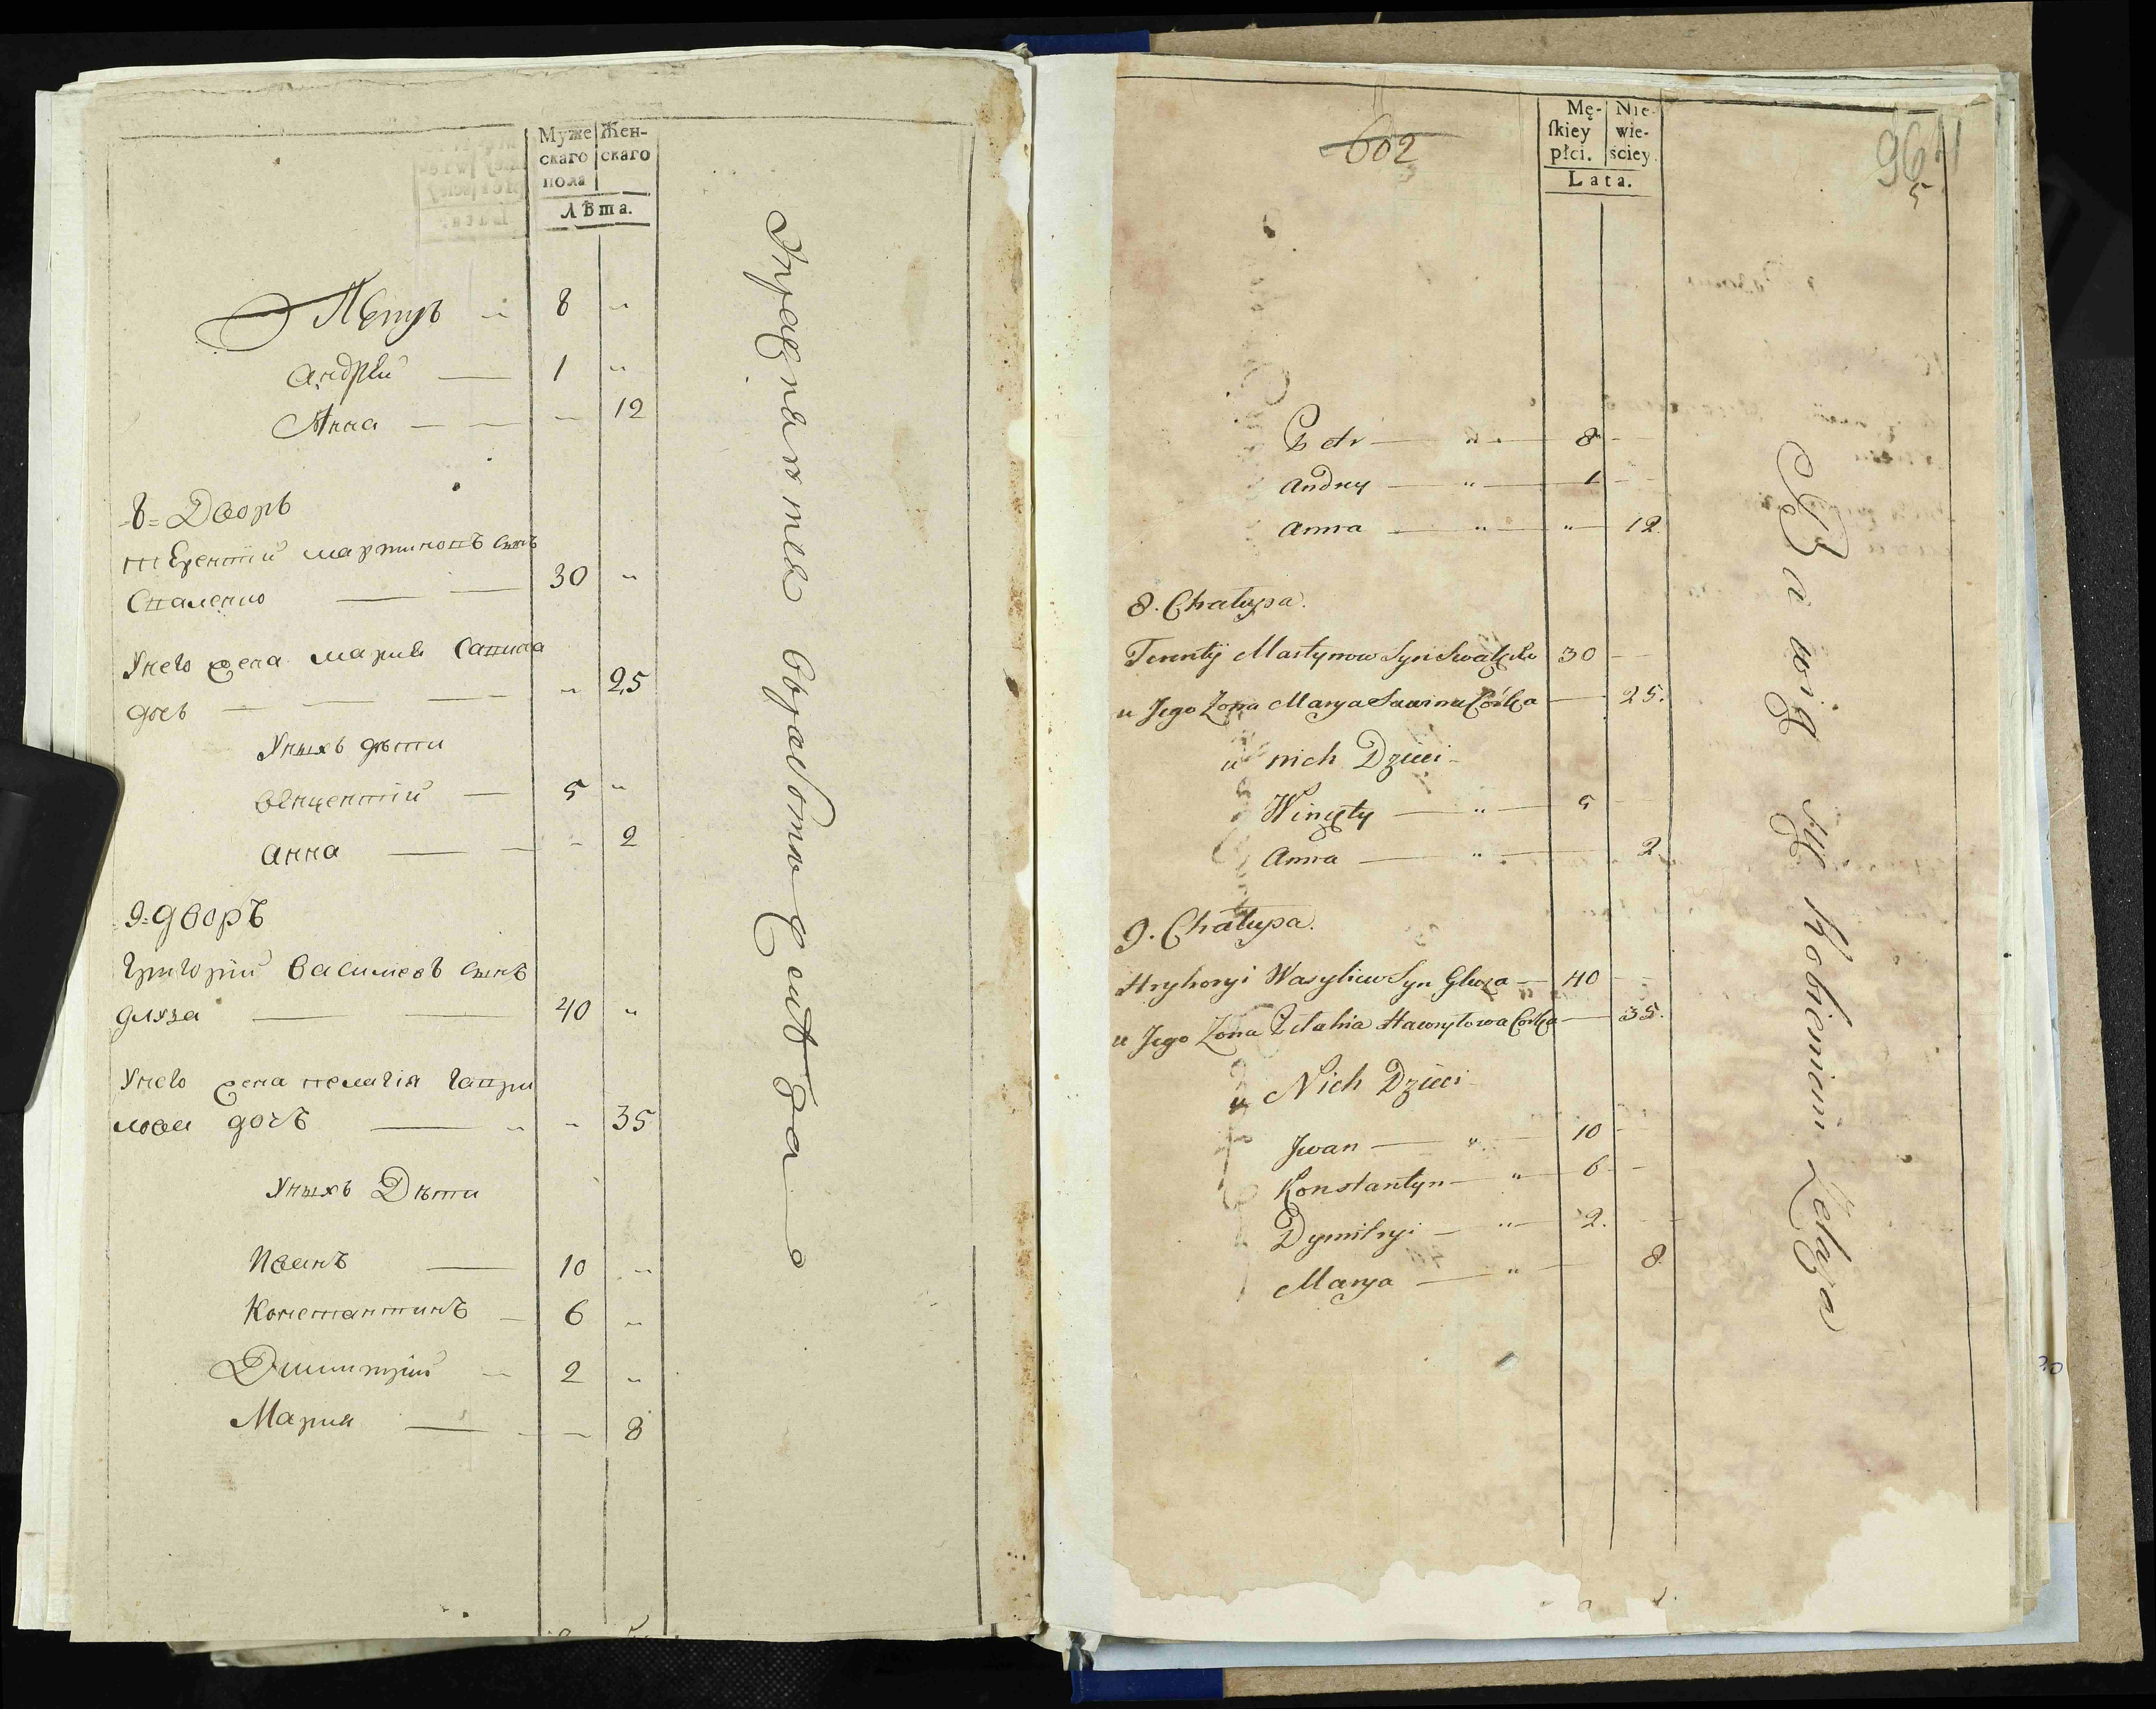 Муже Жен-
скаго скаго
пола
лѣта.
Петръ 8 "
Андрѣй — 1 "
Анна — — — 12
8 = Дворъ
Терентій Мартиновъ сынъ
30 "
Унего жена Мария Савина
дочь — — — " 25
Унихъ дѣти
Викентій — 5 "
Анна — — - 2
9 = дворъ
Григорій Василіевъ сынъ
Длуза — — 40 "
Унего жена Пелагія Гаври
лова дочъ — " - 35
Унихъ Дѣти
Иванъ — 10 "
Константинъ — 6 "
Димитрій — 2 "
Мария — - — 8
602
Mę- Nie-
skiey wie-
płci. ściey.
Lata.
96
5
Piotr — " — 8 -
Andrey — " — 1 -
Anna — " — " — 12
8. Chałupa.
Terenty Martynow Syn 30 —
u Jego Żona Marya Sawina Córka — 25.
u nich Dzieci -
Winçęty — " — 5
Anna — " — 2
9. Chałupa.
Hryhoryi Wasyliew Syn Gluza — 40 -
u Jego Żona Pelahia Hawryłowa Córka — 35.
u Nich Dzieci -
Jwan — " — 10 -
Konstantyn — " — 6 - -
Dymitryi — " — 2. -
Marya — " — 8
Bawią się Robieniem Żelaza